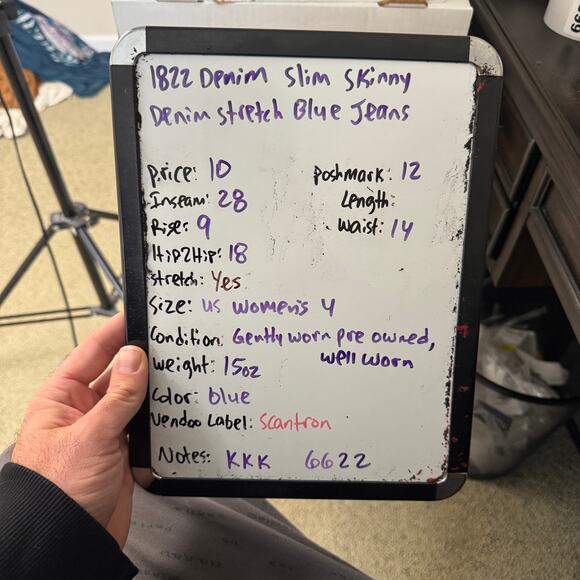 1822 Denim Slim Skinny
Denim Stretch Blue Jeans
Price: 10
Poshmark: 12
Inseam: 28
Length:
Rise: 9
Waist: 14
Hip2Hip: 18
Stretch: Yes
Size: US Women's 4
Condition: Gently worn pre owned,
well worn
Weight: 15oz
Color: blue
Vendoo Label: Scantron
Notes: KKK 6622